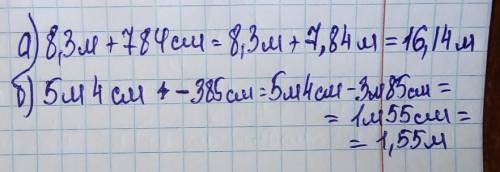 а) 8,3м + 784см = 8,3м + 7,84м = 16,14м
б) 5м 4см - 385см = 5м4см - 3м85см =
= 1м55см =
= 1,55м